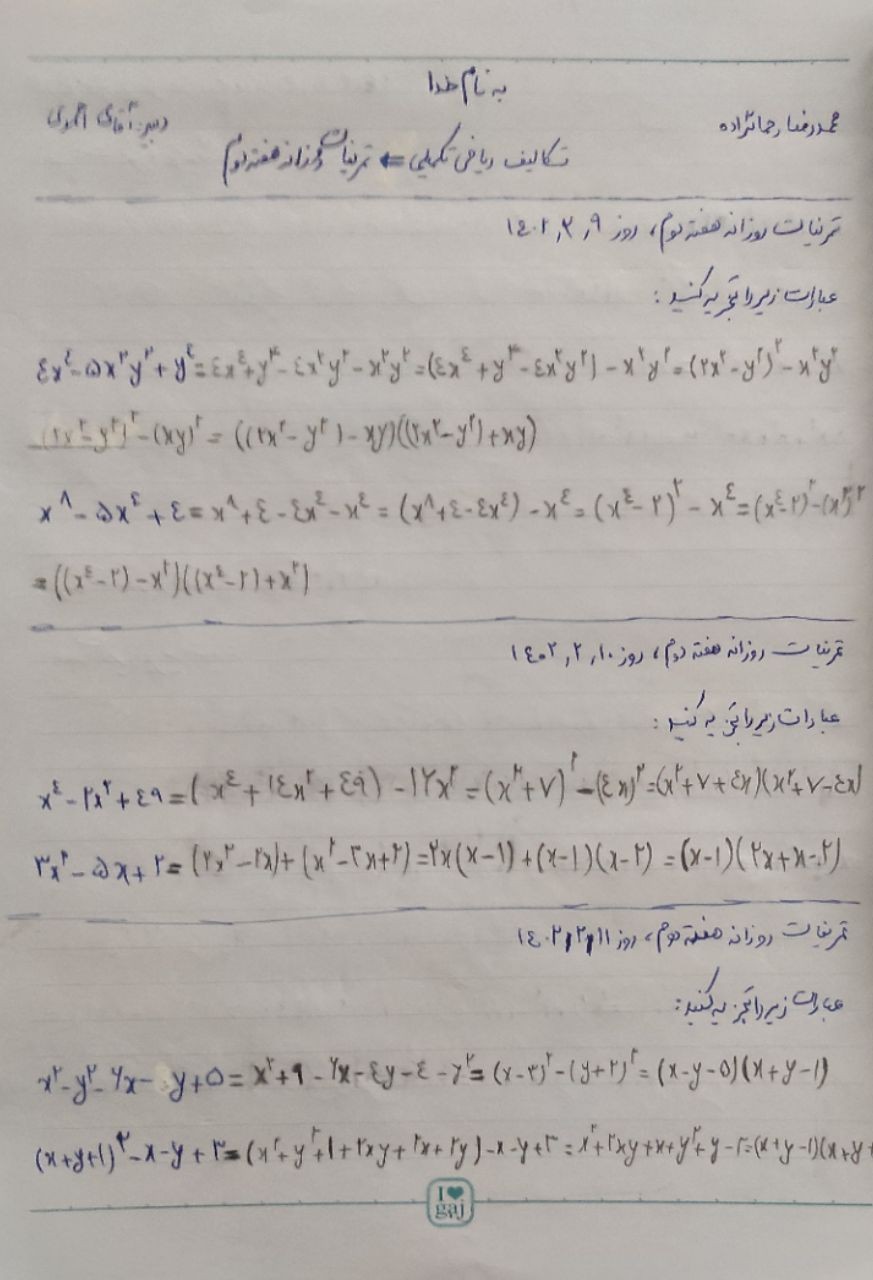 به نام خدا
محمدرضا رضانژاده
دبیر: آقای
تکالیف ریاضی تکمیلی ⇐ تمرینات روزانه هفته دوم
تمرینات روزانه هفته دوم، روز ۹, ۲, ۱٤۰۲
عبارات زیر را تجزیه کنید:
٤x^٤ - ۵x^۲y^۲ + y^٤ = ٤x^٤ + y^٤ - ٤x^۲y^۲ - x^۲y^۲ = (٤x^٤ + y^٤ - ٤x^۲y^۲) - x^۲y^۲ = (۲x^۲ - y^۲)^۲ - x^۲y^۲
(۲x^۲ - y^۲)^۲ - (xy)^۲ = ((۲x^۲ - y^۲) - xy)((۲x^۲ - y^۲) + xy)
x^۸ - ۵x^٤ + ٤ = x^۸ + ٤ - ٤x^٤ - x^٤ = (x^۸ + ٤ - ٤x^٤) - x^٤ = (x^٤ - ۲)^۲ - x^٤ = (x^٤ - ۲)^۲ - (x^۲)^۲
= ((x^٤ - ۲) - x^۲)((x^٤ - ۲) + x^۲)
تمرینات روزانه هفته دوم، روز ۱۰, ۲, ۱٤۰۲
عبارات زیر را تجزیه کنید:
x^٤ - ۲x^۲ + ٤۹ = (x^٤ + ۱٤x^۲ + ٤۹) - ۱۶x^۲ = (x^۲ + ۷)^۲ - (٤x)^۲ = (x^۲ + ۷ + ٤x)(x^۲ + ۷ - ٤x)
۳x^۲ - ۵x + ۲ = (۲x^۲ - ۲x) + (x^۲ - ۳x + ۲) = ۲x(x - ۱) + (x - ۱)(x - ۲) = (x - ۱)(۲x + x - ۲)
تمرینات روزانه هفته دوم، روز ۱۱, ۲, ۱٤۰۲
عبارات زیر را تجزیه کنید:
x^۲ - y^۲ - ۶x - y + ۵ = x^۲ + ۹ - ۶x - ٤y - ٤ - y^۲ = (x - ۳)^۲ - (y + ۲)^۲ = (x - y - ۵)(x + y - ۱)
(x + y + ۱)^۲ - x - y + ۳ = (x^۲ + y^۲ + ۱ + ۲xy + ۲x + ۲y) - x - y + ۳ = x^۲ + ۲xy + x + y^۲ + y - ۲ = (x + y - ۱)(x + y +
I ♥ gaj